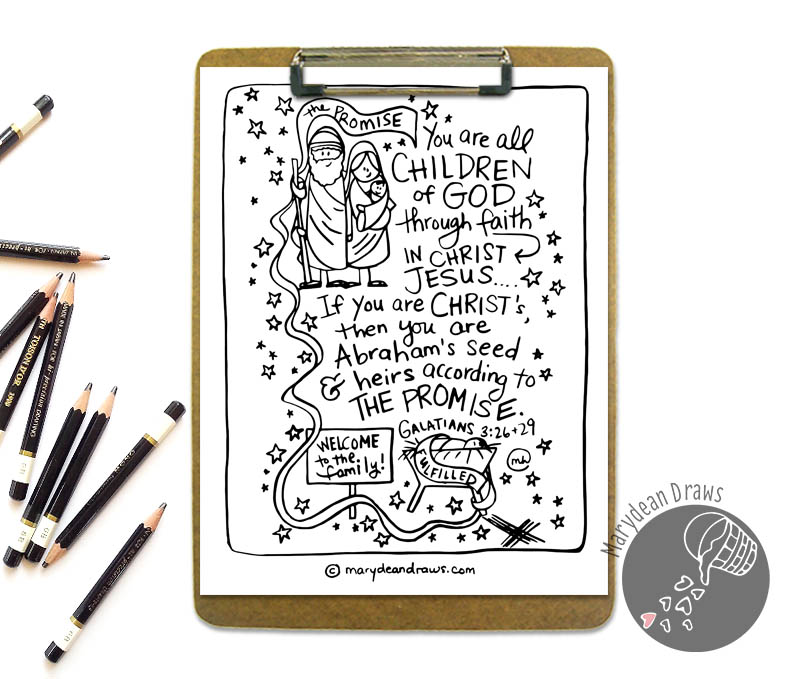 the PROMISE
You are all
CHILDREN
of GOD
through faith
IN CHRIST
JESUS....
If you are CHRIST's,
then you are
Abraham's Seed
& heirs according to
THE PROMISE.
GALATIANS 3:26+29
WELCOME
to the
family!
FULFILLED
© marydeandraws.com
Marydean Draws
TOISON D'OR